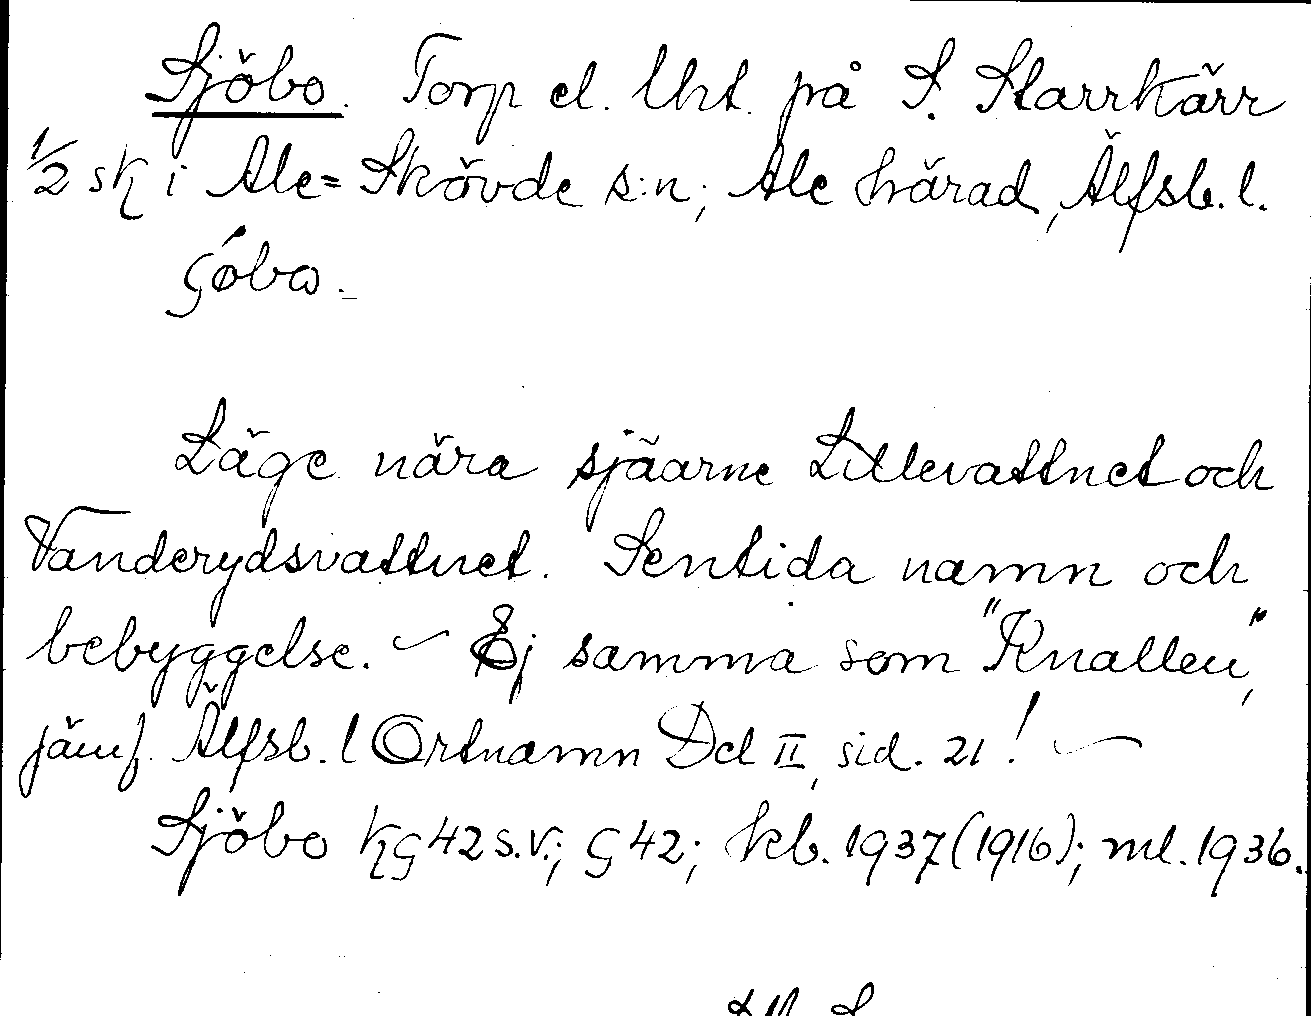 Sjöbo. Torp el. lht. på S. Starrkärr
1/2 sk i Ale=Skövde s:n; Ale härad, Älfsb. l.
Läge nära sjöarne Lillevattnet och
Vanderydsvattnet. Sentida namn och
bebyggelse. – Ej samma som "Knallen",
jämf. Älfsb. l Ortnamn Del II, sid. 21! –
Sjöbo kç 42 s.v.; ç 42; kb. 1937 (1916); ml. 1936.